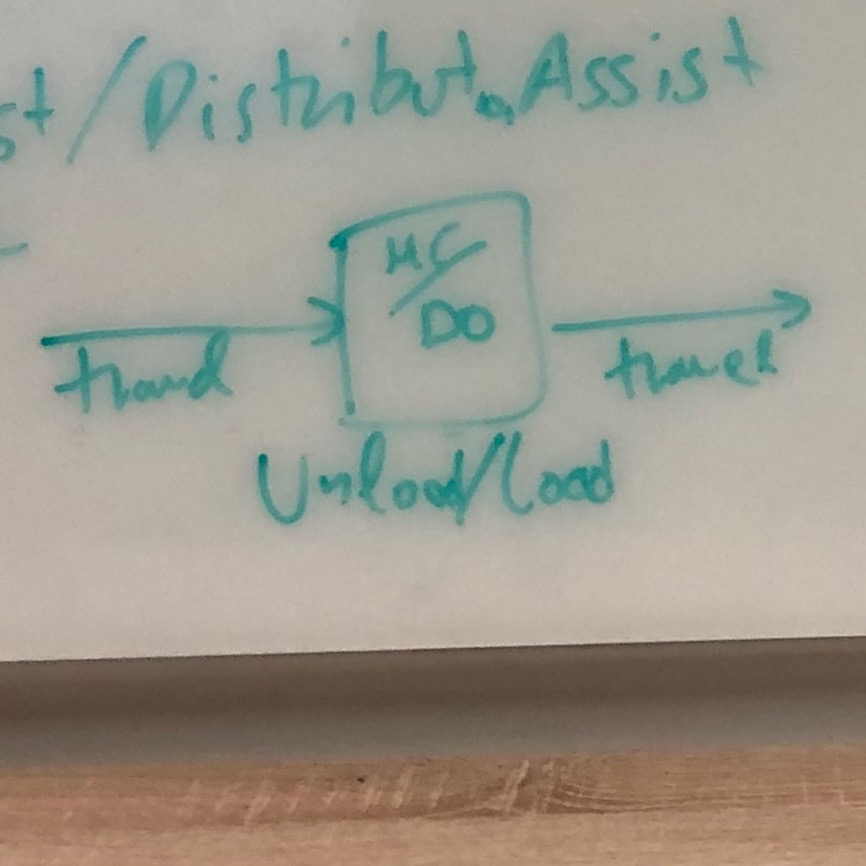 st/Distribut. Assist
HC/
DO
travel
Unload/Load